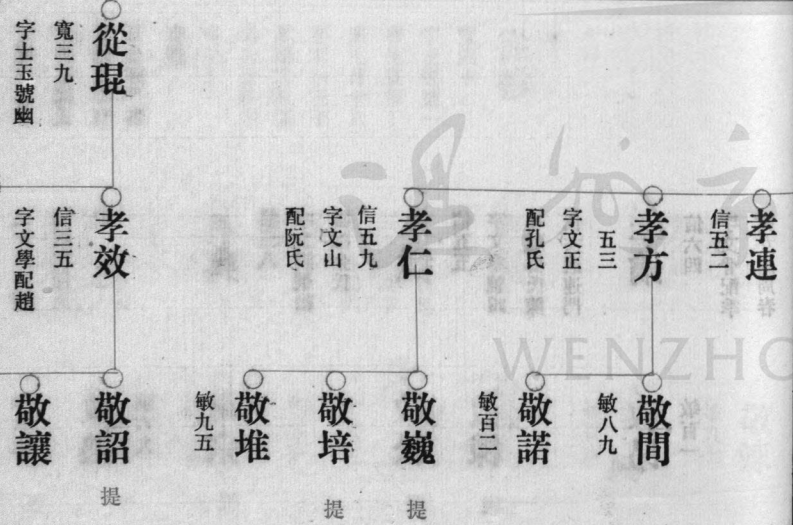 孝連
信五二
孝方
五三
字文正
配孔氏
孝仁
信五九
字文山
配阮氏
從琨
寬三九
字士玉號幽
孝效
信三五
字文學配趙
敬間
敏八九
敬諾
敏百二
敬巍
提
敬培
提
敬堆
敏九五
敬詔
提
敬讓
WENZHO